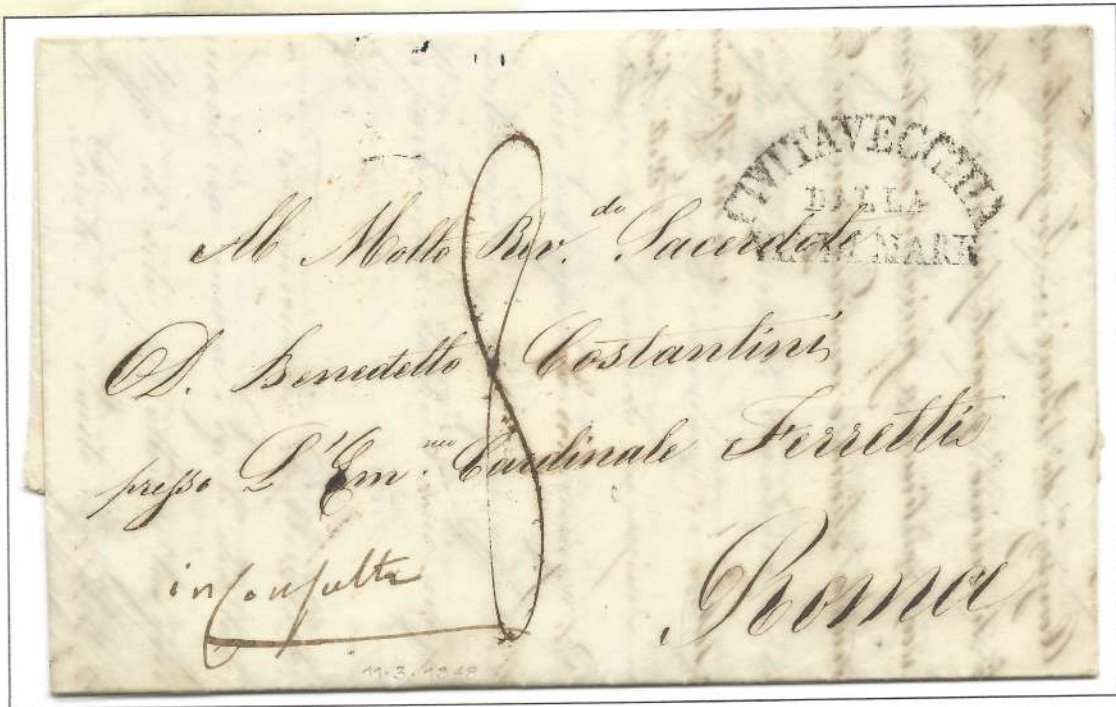 CIVITAVECCHIA
DALLA
VIA DI MARE
Al Molto Rev.do Sacerdote
D. Benedetto Costantini
presso L'Em.mo Cardinale Ferretti
in Consulta
Roma
8
11.3.1848